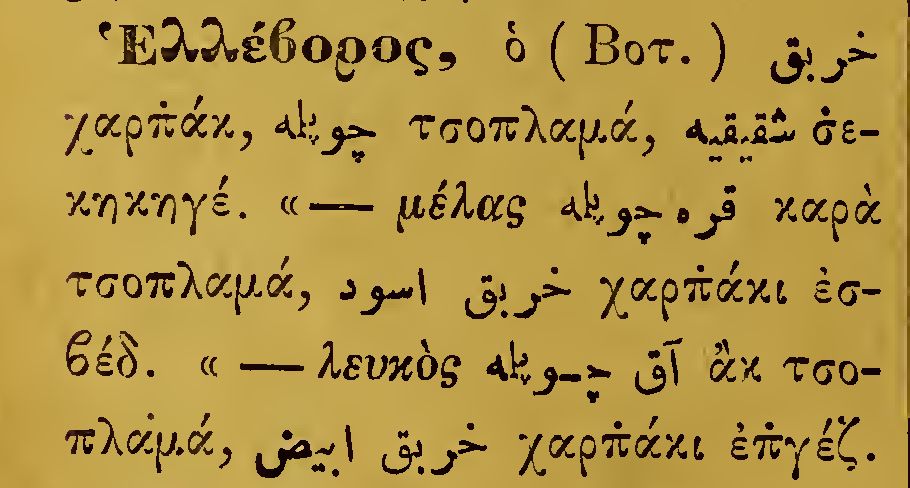 Ἑλλέβορος, ὁ ( Βοτ. ) خربق
χαρπ̇άκ, چوپلمه τσοπλαμά, شقيقيه σ̇ε-
κηκηγέ. «— μέλας قره چوپلمه καρὰ
τσοπλαμά, خربق اسود χαρπ̇άκι ἐσ-
βέδ. « — λευκὸς آق چوپلمه ἂκ τσο-
πλαμά, خربق ابيض χαρπ̇άκι ἐπ̇γέζ.